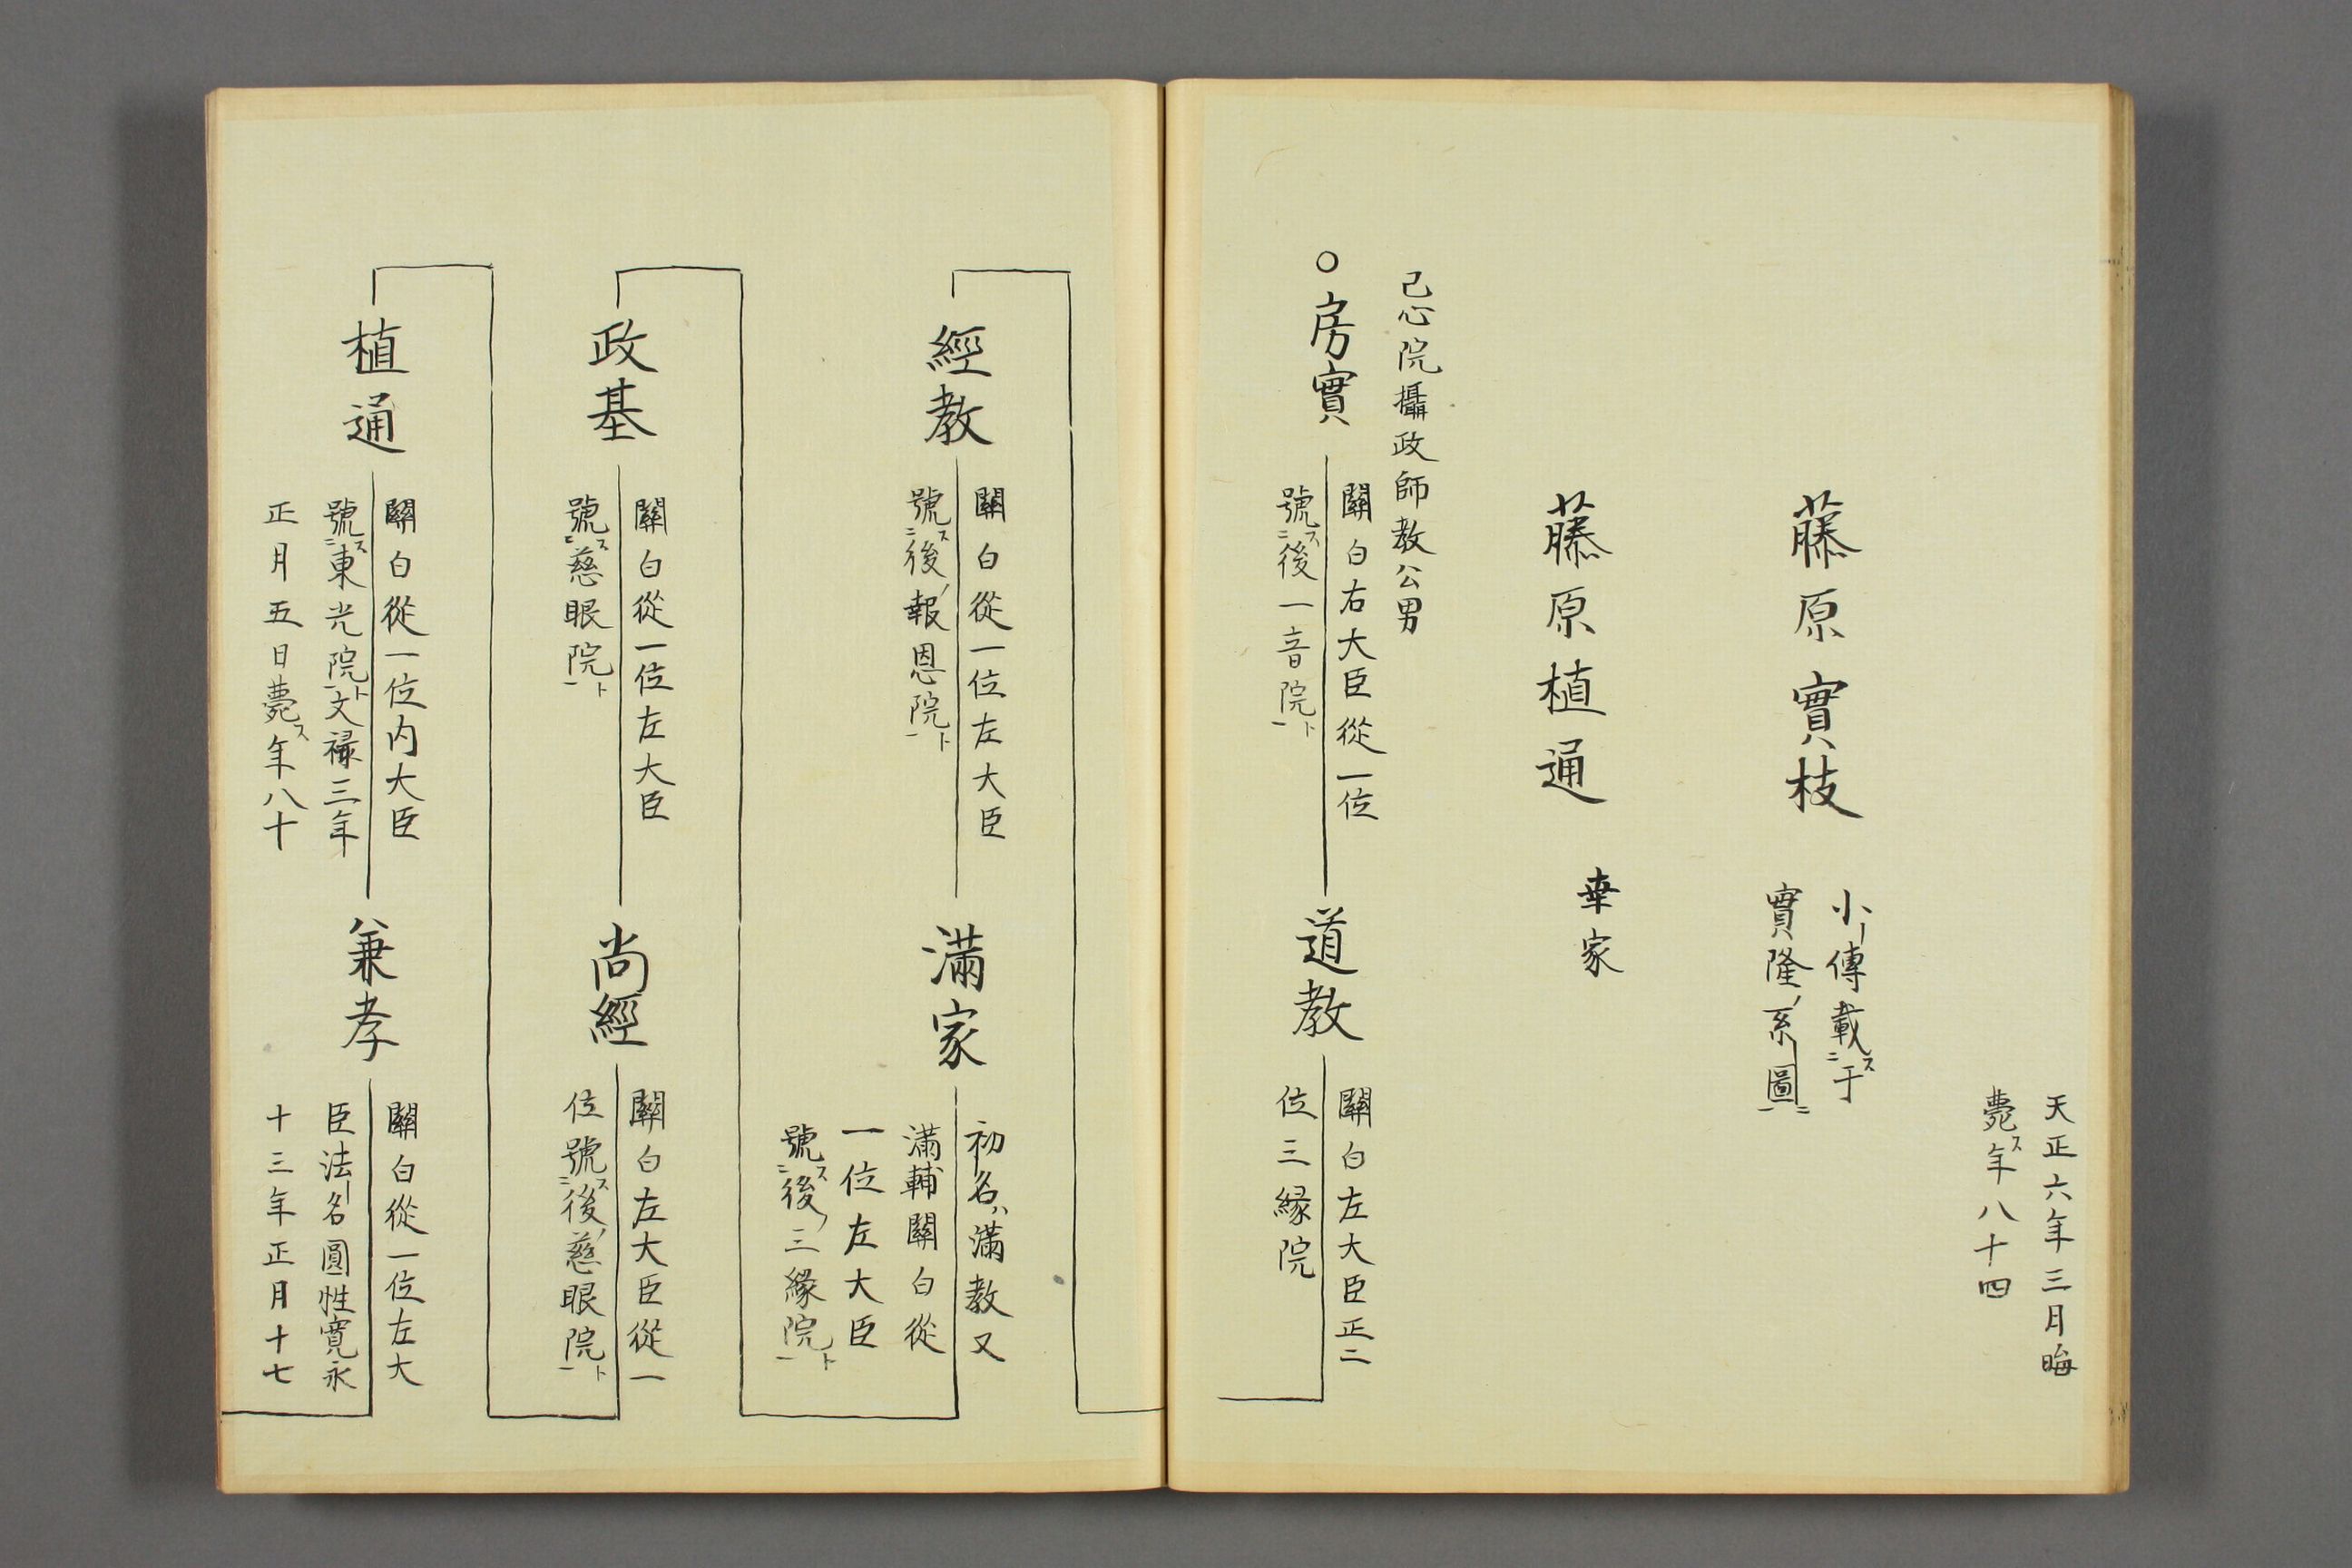 天正六年三月晦
薨ス年八十四
藤原實枝
小傳載ス于
實隆ノ系圖ニ
藤原植通
幸家
己心院攝政師教公男
○房實
關白右大臣從一位
號ス後一音院ト
道教
關白左大臣正二
位三縁院
經教
關白從一位左大臣
號ス後ノ報恩院ト
滿家
初名ハ滿教又
滿輔關白從
一位左大臣
號ス後ノ三縁院ト
政基
關白從一位左大臣
號ス慈眼院ト
尚經
關白左大臣從一
位號ス後ノ慈眼院ト
植通
關白從一位内大臣
號ス東光院ト文禄三年
正月五日薨ス年八十
兼孝
關白從一位左大
臣法名圓性寛永
十三年正月十七